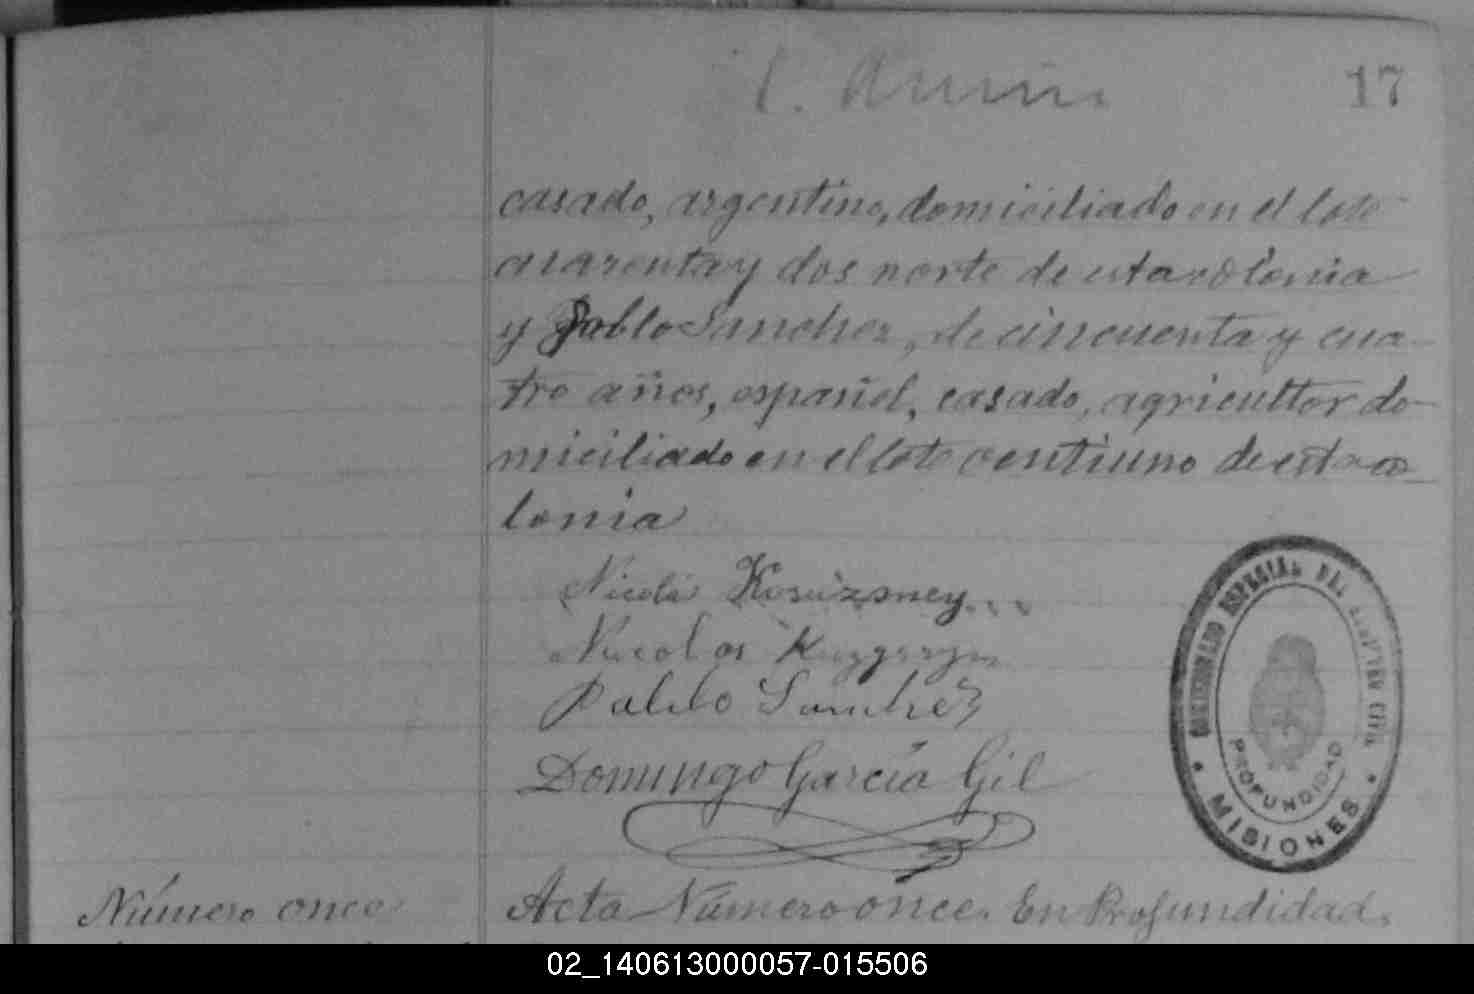 17
casado, argentino, domiciliado en el lote
cuarenta y dos norte de esta colonia
y Pablo Sanchez, de cincuenta y cua-
tro años, español, casado, agricultor do-
miciliado en el lote ventiuno de esta co-
lonia
Pablo Sanchez
Domingo García Gil
ESPECIAL DEL REGISTRO CIVIL
PROFUNDIDAD
MISIONES
Número once
Acta Número once. En Profundidad,
02_140613000057-015506